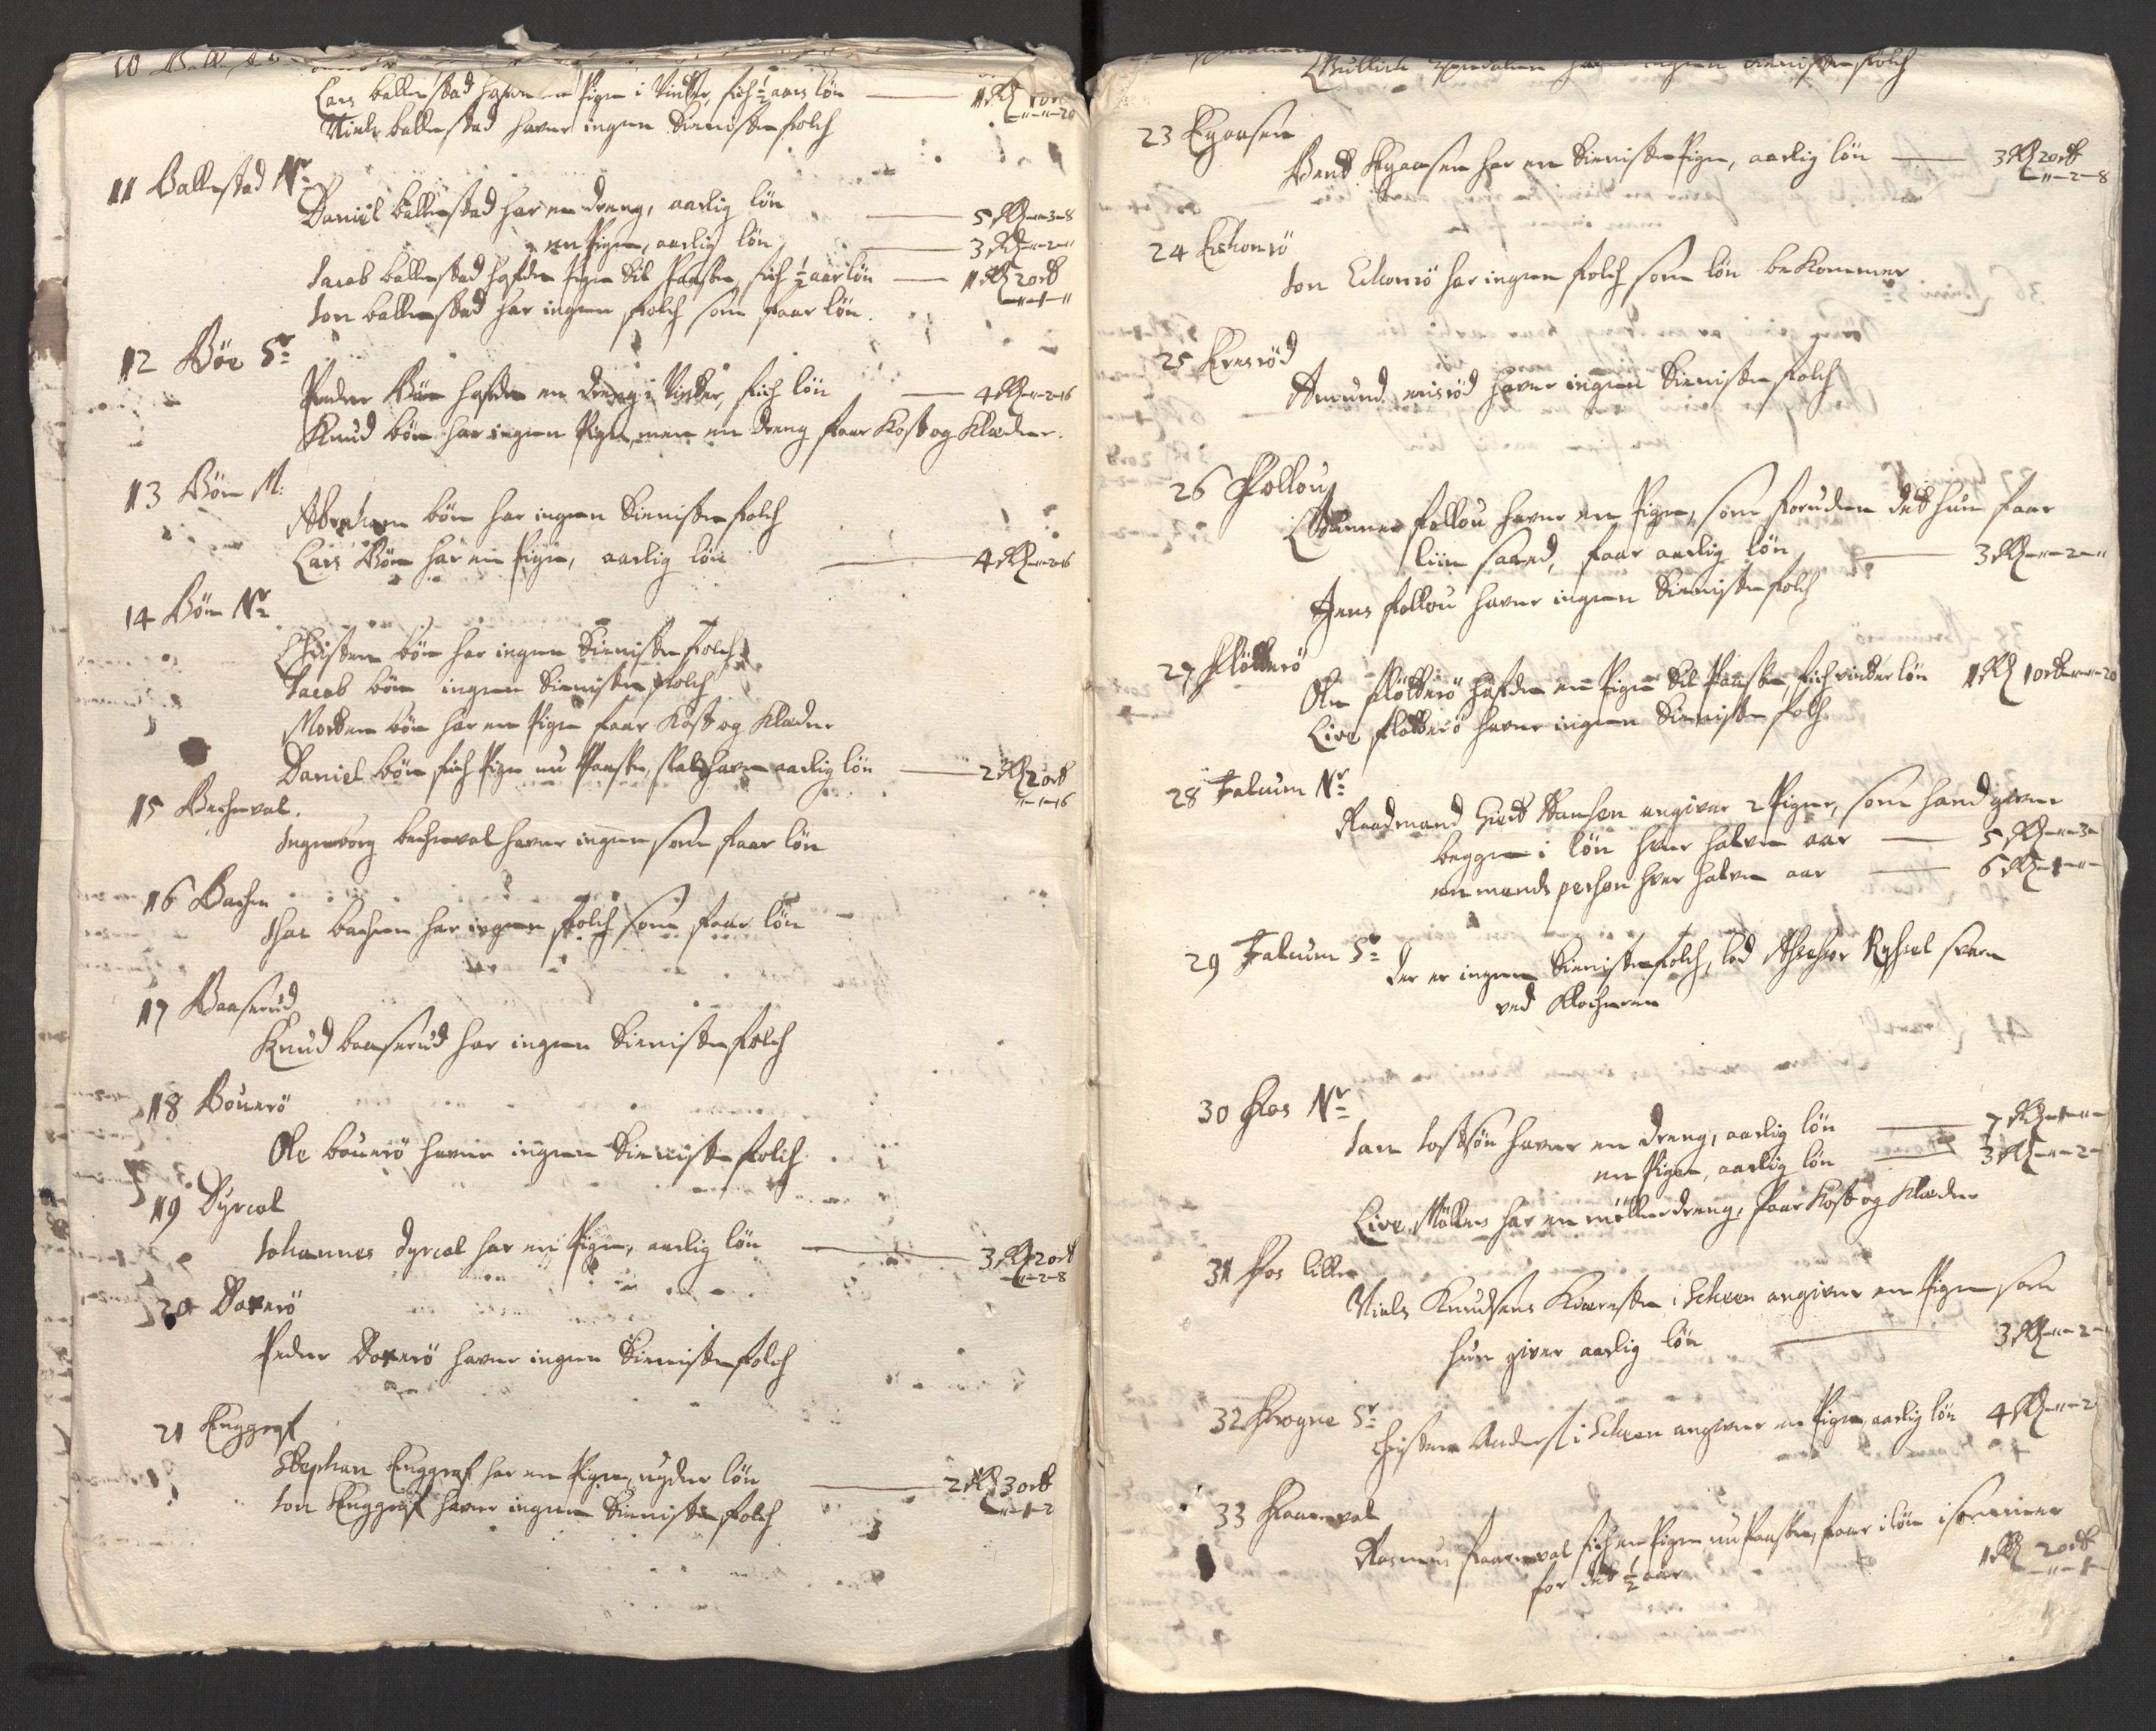 10 Ball
Lars ballestad hafver en Pige i Vinter, fich ½ aars løn 1 Rdr 1 ort
"-"-20
Niels ballestad haver ingen tieniste folch
11 Ballestad Nr
Daniel ballestad har en dreng, aarlig løn 5 Rdr-"-3-8
en Pige, aarlig løn 3 Rdr-"-2-"
Jacob ballestad hafde Pige til Paaske, fich ½ aar løn 1 Rdr 2 ort
"-1-"
Jon ballestad har ingen folch som faar løn.
12 Böe Sr
Peder Böe hafde en dreng i Vinter, fich løn 4 Rdr-"-2-16
Knud böe har ingen Pige, men en dreng faar Kost og Klæder.
13 Böe M:
Abraham böe har ingen tieniste folch
Lars Böe har en Pige, aarlig løn 4 Rdr-"-2-6
14 Böe Nr
Christen böe har ingen tieniste folch
Jacob böe ingen tieniste folch
Morten böe har en Pige faar Kost og Klæder
Daniel böe fich Pige nu Paaske, skal have aarlig løn 2 Rdr 2 ort
"-1-16
15 Becheval.
Ingeborg becheval haver ingen som faar løn
16 Bachen
Ihar bachen har ingen folch som faar løn
17 Baaserud
Knud baaserud har ingen tieniste folch
18 Bouerö
Ole bouerö haver ingen tieniste folch
19 Dyrcol
Johannes dyrcol har en Pige, aarlig løn 3 Rdr 2 ort
"-2-8
20 Doverö
Peder Doverö haver ingen tieniste folch
21 Enggraf
Stephan Enggraf har en Pige, nyder løn 2 Rdr 3 ort
"-1-2
Jon Enggraf haver ingen tieniste folch
ingen tieniste folch
23 Egaasen
Bent Egaasen har en tieniste Pige, aarlig løn 3 Rdr 2 ort
"-2-8
24 Eichonrö
Jon Eichonrö har ingen folch som løn bekommer
25 Enersröd
Amund enersröd haver ingen tieniste folch
26 Follou
Gunner follou haver en Pige, som foruden det hun faar
liin saaed, faar aarlig løn 3 Rdr-"-2-"
Jens follou haver ingen tieniste folch
27 Flötterö
Ole flötterö hafde en Pige til Paaske, fich vinter løn 1 Rdr 1 ort-"-"-20
Live flötterö haver ingen tieniste folch
28 Falcum Nr
Raadmand Giert Hansen angiver 2 Piger, som hand giver
begge i løn hver halve aar 5 Rdr-"-3-
en mands person hver halve aar 6 Rdr-1-"-
29 Falcum Sr
der er ingen tieniste folch, lod Assessor Ryssel svare
ved Klocheren
30 Fos Nr
Jan Jostsøn haver en dreng, aarlig løn 7 Rdr-1-"-
en Pige, aarlig løn 3 Rdr-"-2-
Live Möllers har en möllerdreng, faar Kost og Klæder
31 Fos lille
Niels Knudsens Kiereste i Scheen angiver en Pige som
hun giver aarlig løn 3 Rdr-"-2-
32 Frogne Sr
Christen Anders i Scheen angiver en Pige, aarlig løn 4 Rdr-"-2
33 Faareval
Rasmus faareval fich en Pige nu Paaske, faar i løn i sommer
for det ½ aar 1 Rdr 2 ort
"-1-